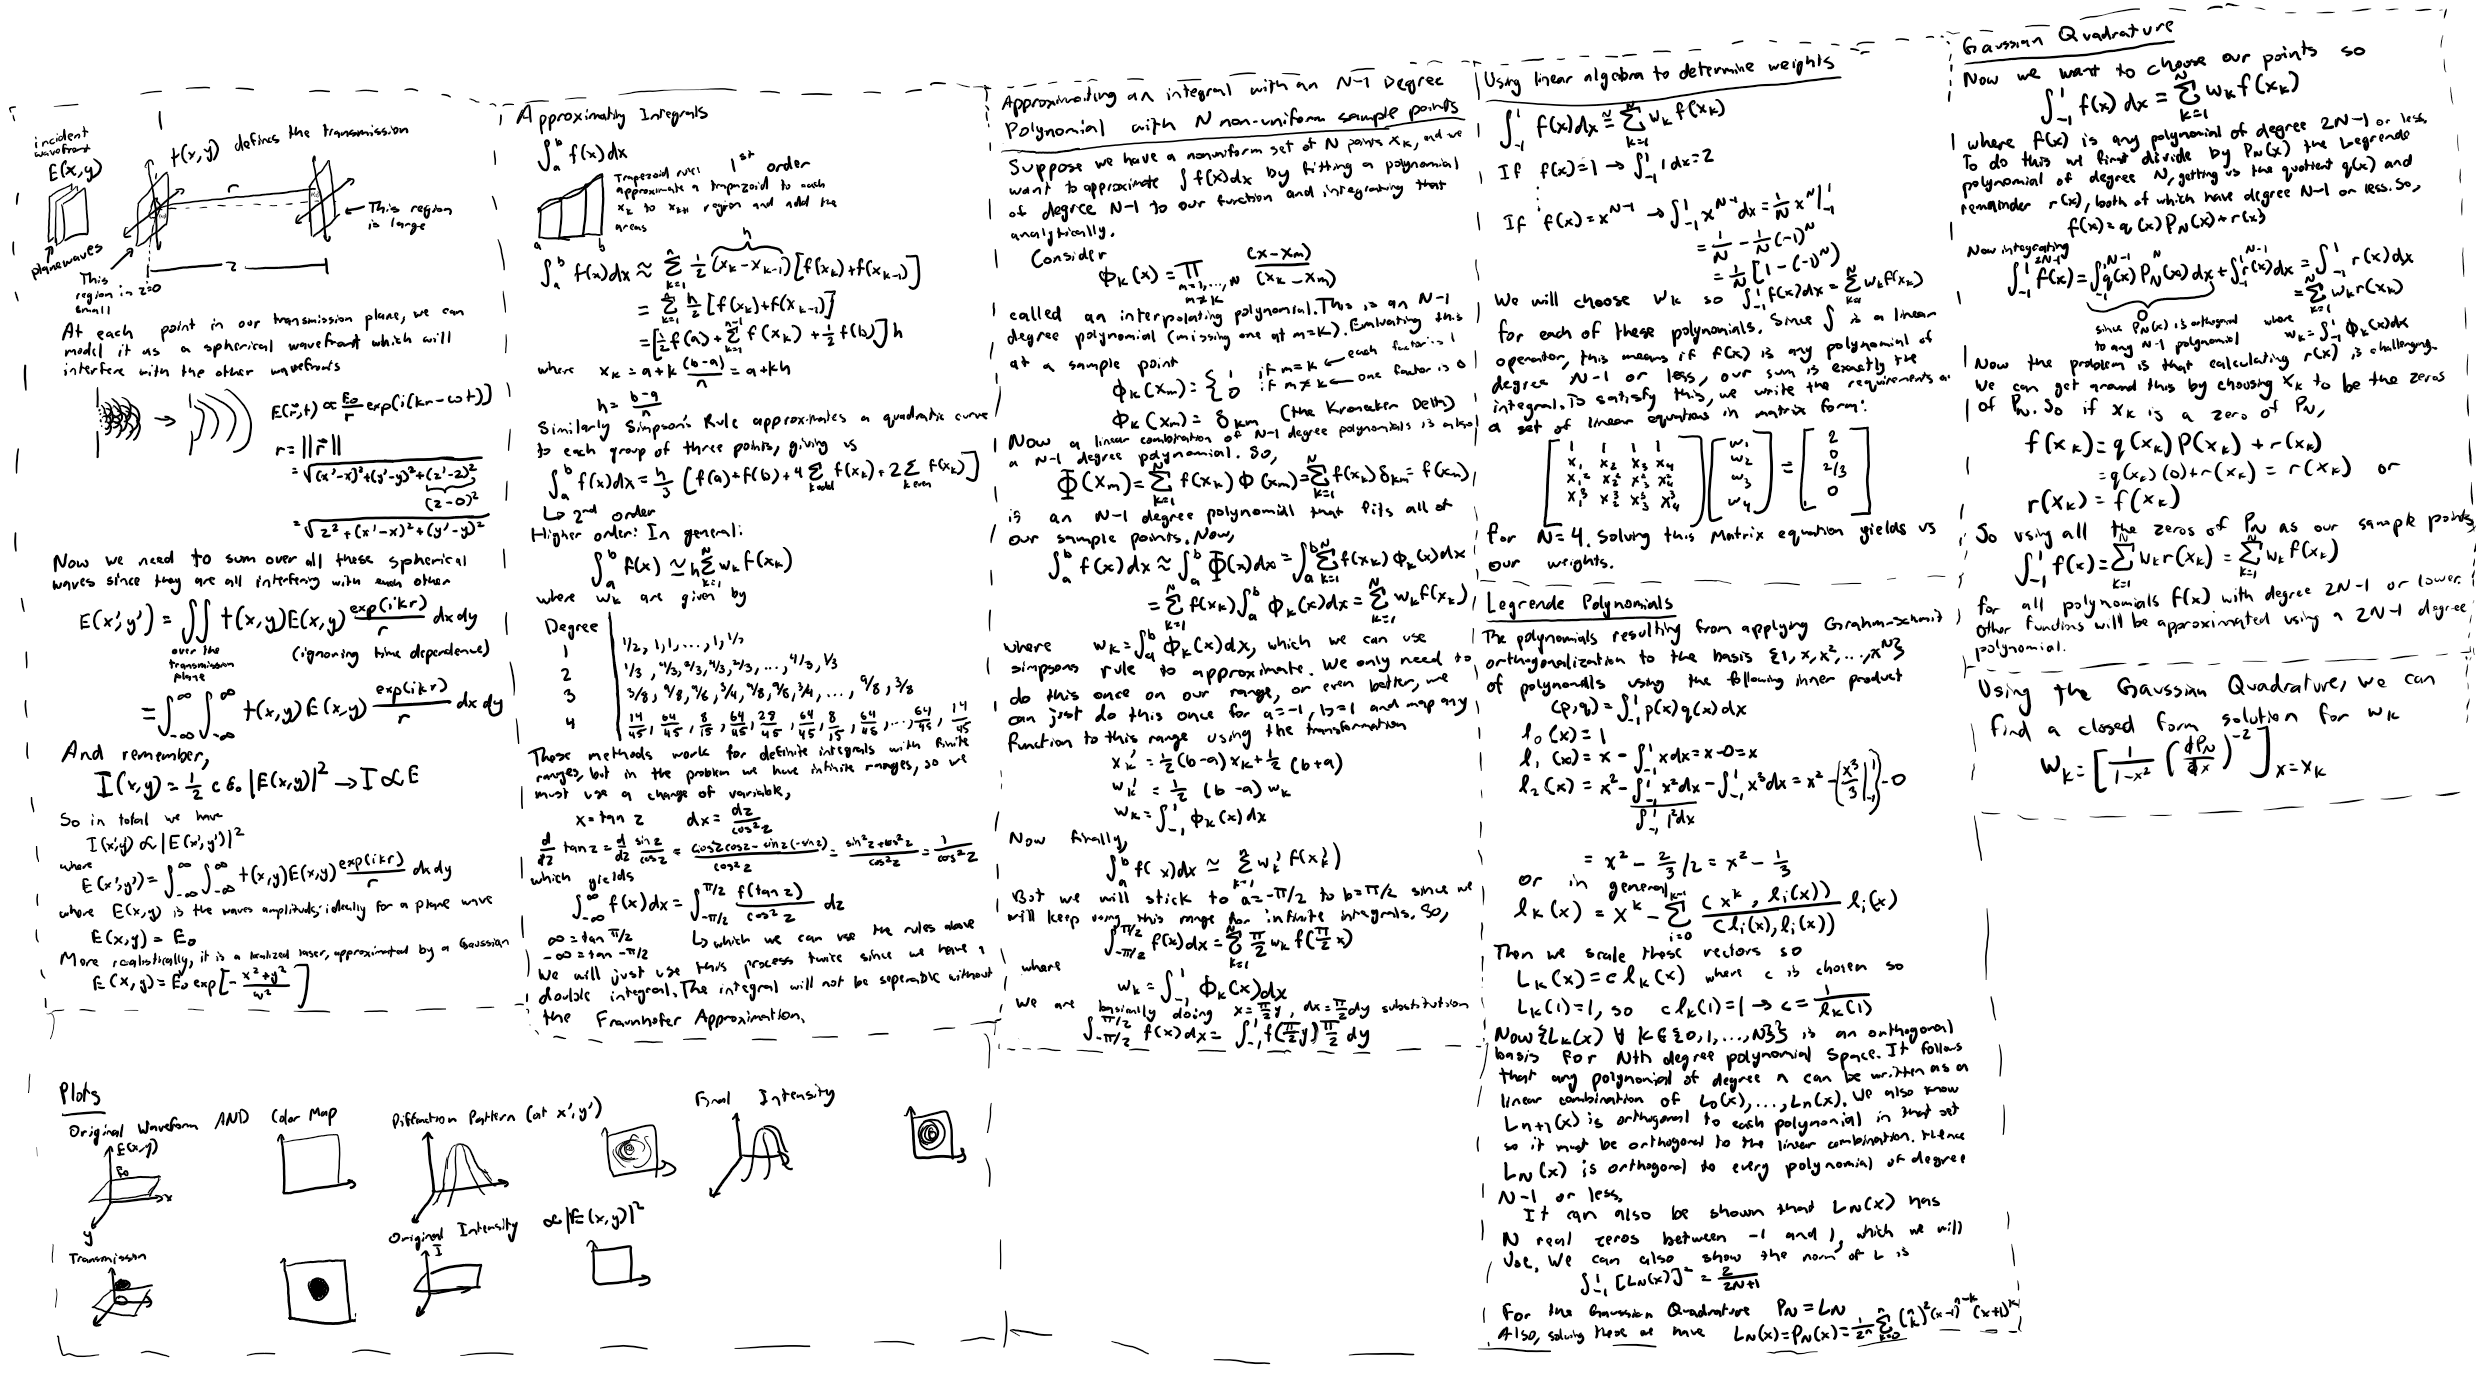 incident
wavefront
E(x,y)
t(x,y) defines the transmission
r
← This region
is large
plane waves
This
region in z=0
small
z
At each point in our transmission plane, we can
model it as a spherical wavefront which will
interfere with the other wavefronts
E(r⃗,t) ∝ E₀/r exp(i(kr-ωt))
r = ||r⃗||
= √((x'-x)²+(y'-y)²+(z'-z)²)
(z-0)²
= √(z²+(x'-x)²+(y'-y)²)
Now we need to sum over all these spherical
waves since they are all interfering with each other
E(x',y') = ∬ t(x,y)E(x,y) exp(ikr)/r dxdy
over the
transmission
plane
(ignoring time dependence)
= ∫_-∞^∞ ∫_-∞^∞ t(x,y)E(x,y) exp(ikr)/r dxdy
And remember,
I(x,y) = 1/2 cε₀ |E(x,y)|² → I∝E
So in total we have
I(x',y') ∝ |E(x',y')|²
where
E(x',y') = ∫_-∞^∞ ∫_-∞^∞ t(x,y)E(x,y) exp(ikr)/r dxdy
where E(x,y) is the waves amplitude; ideally for a plane wave
E(x,y) = E₀
More realistically, it is a localized laser, approximated by a Gaussian
E(x,y) = E₀ exp[-(x²+y²)/w²]
Approximating Integrals
∫_a^b f(x)dx
Trapezoid rule: 1st order
approximate a trapezoid to each
x_k to x_k+1 region and add the
areas
a b
h
∫_a^b f(x)dx ≈ Σ_{k=1}^n 1/2 (x_k-x_{k-1})[f(x_k)+f(x_{k-1})]
= Σ_{k=1}^n h/2 [f(x_k)+f(x_{k-1})]
= [1/2 f(a) + Σ_{k=1}^{n-1} f(x_k) + 1/2 f(b)]h
where x_k = a+k (b-a)/n = a+kh
h = (b-a)/n
Similarly Simpson's Rule approximates a quadratic curve
to each group of three points, giving us
∫_a^b f(x)dx = h/3 [f(a)+f(b)+4 Σ_{k odd} f(x_k)+2 Σ_{k even} f(x_k)]
↳ 2nd order
Higher order: In general:
∫_a^b f(x) ≃ h Σ_{k=1}^N w_k f(x_k)
where w_k are given by
Degree
1 1/2, 1, 1, ..., 1, 1/2
2 1/3, 4/3, 2/3, 4/3, 2/3, ..., 4/3, 1/3
3 3/8, 9/8, 9/8, 3/4, 9/8, 9/8, 3/4, ..., 9/8, 3/8
4 14/45, 64/45, 8/15, 64/45, 28/45, 64/45, 8/15, 64/45, ..., 64/45, 14/45
These methods work for definite integrals with finite
ranges, but in the problem we have infinite ranges, so we
must use a change of variable,
x = tan z dx = dz/cos²z
d/dz tan z = d/dz sin z/cos z = (cos z cos z - sin z(-sin z))/cos²z = (sin²z+cos²z)/cos²z = 1/cos²z
which yields
∫_-∞^∞ f(x)dx = ∫_-π/2^π/2 f(tan z)/cos²z dz
∞ = tan π/2 ↳ which we can use the rules above
-∞ = tan -π/2
We will just use this process twice since we have a
double integral. The integral will not be seperable without
the Fraunhofer Approximation.
Approximating an integral with an N-1 Degree
Polynomial with N non-uniform sample points
Suppose we have a nonuniform set of N points x_k, and we
want to approximate ∫f(x)dx by fitting a polynomial
of degree N-1 to our function and integrating that
analytically.
Consider
Φ_k(x) = Π_{m=1,...,N m≠k} (x-x_m)/(x_k-x_m)
called an interpolating polynomial. This is an N-1
degree polynomial (missing one at m=k). Evaluating this
at a sample point
Φ_k(x_m) = { 1 if m=k ← each factor is 1
0 if m≠k ← one factor is 0
Φ_k(x_m) = δ_km (the Kronecker Delta)
Now a linear combination of N-1 degree polynomials is also
a N-1 degree polynomial. So,
Φ(x_m) = Σ_{k=1}^N f(x_k)Φ(x_m) = Σ_{k=1}^N f(x_k)δ_km = f(x_m)
is an N-1 degree polynomial that fits all of
our sample points. Now,
∫_a^b f(x)dx ≈ ∫_a^b Φ(x)dx = ∫_a^b Σ_{k=1}^N f(x_k)Φ_k(x)dx
= Σ_{k=1}^N f(x_k)∫_a^b Φ_k(x)dx = Σ_{k=1}^N w_k f(x_k)
where w_k = ∫_a^b Φ_k(x)dx, which we can use
simpsons rule to approximate. We only need to
do this once on our range, or even better, we
can just do this once for a=-1, b=1 and map any
function to this range using the transformation
x_k' = 1/2(b-a)x_k + 1/2(b+a)
w_k' = 1/2 (b-a) w_k
w_k = ∫_-1^1 Φ_k(x)dx
Now finally,
∫_a^b f(x)dx ≃ Σ_{k=1}^n w_k' f(x_k')
But we will stick to a=-π/2 to b=π/2 since we
will keep using this range for infinite integrals. So,
∫_-π/2^π/2 f(x)dx = Σ_{k=1}^N π/2 w_k f(π/2 x)
where
w_k = ∫_-1^1 Φ_k(x)dx
We are basically doing x=π/2 y, dx=π/2 dy substitution
∫_-π/2^π/2 f(x)dx = ∫_-1^1 f(π/2 y) π/2 dy
Using linear algebra to determine weights
∫_-1^1 f(x)dx ≅ Σ_{k=1}^N w_k f(x_k)
If f(x)=1 → ∫_-1^1 1dx=2
⋮
If f(x)=x^{N-1} → ∫_-1^1 x^{N-1}dx = 1/N x^N|_-1^1
= 1/N - 1/N (-1)^N
= 1/N [1-(-1)^N]
We will choose w_k so ∫_-1^1 f(x)dx = Σ_{k=1}^N w_k f(x_k)
for each of these polynomials. Since ∫ is a linear
operator, this means if f(x) is any polynomial of
degree N-1 or less, our sum is exactly the
integral. To satisfy this, we write the requirements as
a set of linear equations in matrix form:
[1 1 1 1] [w₁] [2]
[x₁ x₂ x₃ x₄] [w₂] = [0]
[x₁² x₂² x₃² x₄²] [w₃] [2/3]
[x₁³ x₂³ x₃³ x₄³] [w₄] [0]
for N=4. Solving this Matrix equation yields us
our weights.
Legrende Polynomials
The polynomials resulting from applying Grahm-Schmit
orthogonalization to the basis {1, x, x², ..., x^N}
of polynomials using the following inner product
(p,q) = ∫_-1^1 p(x)q(x)dx
l₀(x) = 1
l₁(x) = x - ∫_-1^1 xdx = x-0 = x
l₂(x) = x² - ∫_-1^1 x²dx / ∫_-1^1 1²dx - ∫_-1^1 x³dx = x² - (x³/3|_-1^1) - 0
= x² - 2/3 /2 = x² - 1/3
or in general
l_k(x) = x^k - Σ_{i=0}^{k-1} (x^k, l_i(x))/(l_i(x), l_i(x)) l_i(x)
Then we scale these vectors so
L_k(x) = c l_k(x) where c is chosen so
L_k(1)=1, so c l_k(1)=1 → c = 1/l_k(1)
Now {L_k(x) ∀ k∈{0,1,...,N}} is an orthogonal
basis for Nth degree polynomial space. It follows
that any polynomial of degree n can be written as a
linear combination of L₀(x), ..., L_n(x). We also know
L_{n+1}(x) is orthogonal to each polynomial in that set
so it must be orthogonal to the linear combination. Hence
L_N(x) is orthogonal to every polynomial of degree
N-1 or less.
It can also be shown that L_N(x) has
N real zeros between -1 and 1, which we will
use. We can also show the norm² of L is
∫_-1^1 [L_N(x)]² = 2/(2N+1)
For the Gaussian Quadrature P_N = L_N
Also, solving these we have L_N(x)=P_N(x) = 1/2^n Σ_{k=0}^n (n k)² (x-1)^{n-k} (x+1)^k
Gaussian Quadrature
Now we want to choose our points so
∫_-1^1 f(x)dx = Σ_{k=1}^N w_k f(x_k)
where f(x) is any polynomial of degree 2N-1 or less.
To do this we first divide by P_N(x) the Legrende
polynomial of degree N, getting us the quotient q(x) and
remainder r(x), both of which have degree N-1 or less. So,
f(x) = q(x)P_N(x)+r(x)
Now integrating
2N-1 N-1 N N-1
∫_-1^1 f(x) = ∫_-1^1 q(x)P_N(x)dx + ∫_-1^1 r(x)dx = ∫_-1^1 r(x)dx
0
= Σ_{k=1}^N w_k r(x_k)
since P_N(x) is orthogonal
to any N-1 polynomial
where
w_k = ∫_-1^1 Φ_k(x)dx
Now the problem is that calculating r(x) is challenging.
We can get around this by choosing x_k to be the zeros
of P_N. So if x_k is a zero of P_N,
f(x_k) = q(x_k)P(x_k) + r(x_k)
= q(x_k)(0)+r(x_k) = r(x_k) or
r(x_k) = f(x_k)
So using all the zeros of P_N as our sample points,
∫_-1^1 f(x) = Σ_{k=1}^N w_k r(x_k) = Σ_{k=1}^N w_k f(x_k)
for all polynomials f(x) with degree 2N-1 or lower.
Other functions will be approximated using a 2N-1 degree
polynomial.
Using the Gaussian Quadrature, we can
find a closed form solution for w_k
w_k = [1/(1-x²) (dP_N/dx)^-2]_{x=x_k}
Plots
Original Waveform AND Color Map
E(x,y)
E₀
x
y
Diffraction Pattern (at x',y')
Final Intensity
Transmission
Original Intensity ∝|E(x,y)|²
I